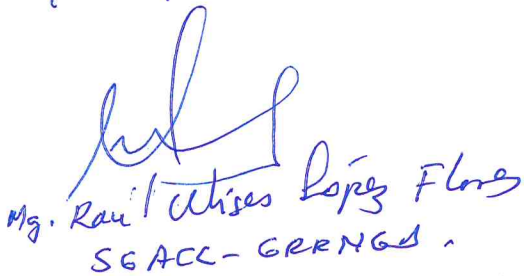 Mg. Raúl Ulises López Flores
SGACC - GRRNGA.